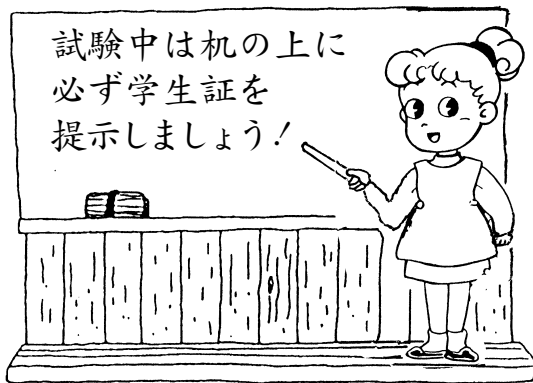 試験中は机の上に
必ず学生証を
提示しましょう!